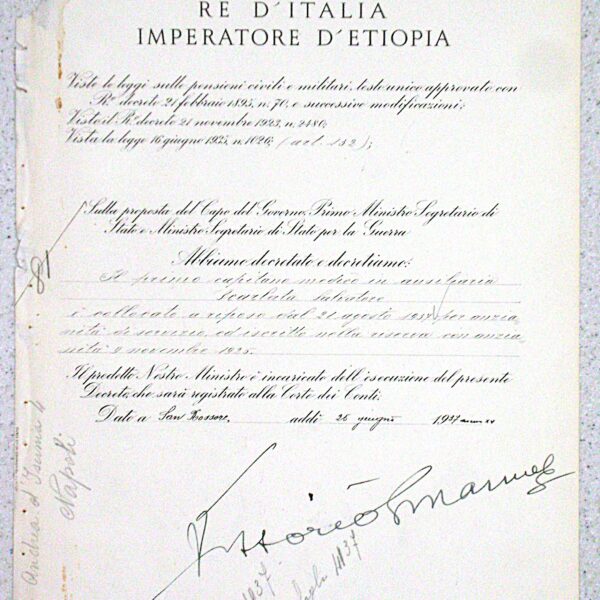 RE D'ITALIA
IMPERATORE D'ETIOPIA
Viste le leggi sulle pensioni civili e militari, testo unico approvato con
R.º decreto 21 febbraio 1895, n. 70, e successive modificazioni;
Visto il R.º decreto 21 novembre 1923, n. 2480;
Vista la legge 16 giugno 1935, n. 1026; (art. 152);
Sulla proposta del Capo del Governo, Primo Ministro Segretario di
Stato e Ministro Segretario di Stato per la Guerra
Abbiamo decretato e decretiamo:
Il primo capitano medico in ausiliaria
Scarlata Salvatore
è collocato a riposo dal 21 agosto 1937 per anzia-
nità di servizio ed iscritto nella riserva con anzia-
nità 9 novembre 1935.
Il predetto Nostro Ministro è incaricato dell'esecuzione del presente
Decreto, che sarà registrato alla Corte dei Conti.
Dato a San Rossore, addì 26 giugno 1937 anno XV
Vittorio Emanuele
Andrea d'Isernia
Napoli
1937
luglio 1937